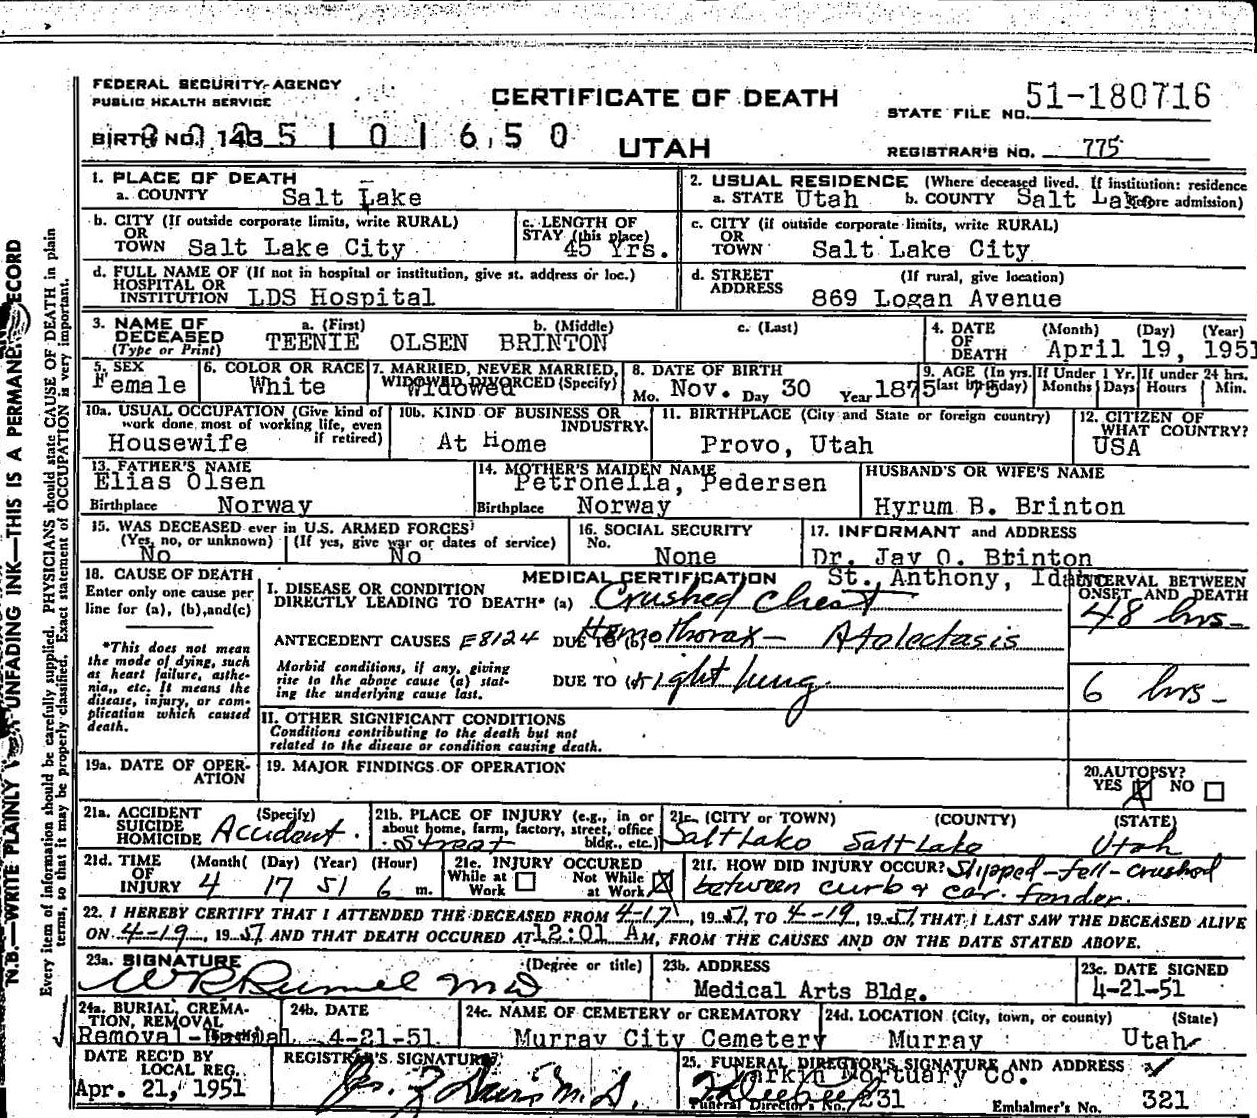 FEDERAL SECURITY AGENCY
PUBLIC HEALTH SERVICE
CERTIFICATE OF DEATH
STATE FILE NO. 51-180716
BIRTH NO. 143
UTAH
REGISTRAR'S NO. 775
1. PLACE OF DEATH
a. COUNTY Salt Lake
2. USUAL RESIDENCE (Where deceased lived. If institution: residence before admission)
a. STATE Utah b. COUNTY Salt Lake
b. CITY (If outside corporate limits, write RURAL)
OR
TOWN Salt Lake City
c. LENGTH OF
STAY (this place)
45 Yrs.
c. CITY (if outside corporate limits, write RURAL)
OR
TOWN Salt Lake City
d. FULL NAME OF (If not in hospital or institution, give st. address or loc.)
HOSPITAL OR
INSTITUTION LDS Hospital
d. STREET (If rural, give location)
ADDRESS
869 Logan Avenue
3. NAME OF DECEASED
(Type or Print)
a. (First) b. (Middle) c. (Last)
TEENIE OLSEN BRINTON
4. DATE OF DEATH (Month) (Day) (Year)
April 19, 1951
5. SEX
Female
6. COLOR OR RACE
White
7. MARRIED, NEVER MARRIED,
WIDOWED, DIVORCED (Specify)
Widowed
8. DATE OF BIRTH
Mo. Nov. Day 30 Year 1875
9. AGE (In yrs. last birthday)
75
If Under 1 Yr.
Months Days
If under 24 hrs.
Hours Min.
10a. USUAL OCCUPATION (Give kind of
work done most of working life, even
if retired)
Housewife
10b. KIND OF BUSINESS OR
INDUSTRY.
At Home
11. BIRTHPLACE (City and State or foreign country)
Provo, Utah
12. CITIZEN OF
WHAT COUNTRY?
USA
13. FATHER'S NAME
Elias Olsen
Birthplace Norway
14. MOTHER'S MAIDEN NAME
Petronella, Pedersen
Birthplace Norway
HUSBAND'S OR WIFE'S NAME
Hyrum B. Brinton
15. WAS DECEASED ever in U.S. ARMED FORCES?
(Yes, no, or unknown) (If yes, give war or dates of service)
No No
16. SOCIAL SECURITY
No.
None
17. INFORMANT and ADDRESS
Dr. Jay O. Brinton
St. Anthony, Idaho
18. CAUSE OF DEATH
Enter only one cause per
line for (a), (b), and (c)
*This does not mean
the mode of dying, such
as heart failure, asthe-
nia, etc. It means the
disease, injury, or com-
plication which caused
death.
MEDICAL CERTIFICATION
INTERVAL BETWEEN
ONSET AND DEATH
I. DISEASE OR CONDITION
DIRECTLY LEADING TO DEATH* (a) Crushed Chest
48 hrs-
ANTECEDENT CAUSES E8124 DUE TO (b) Hemothorax - Atalectasis
Morbid conditions, if any, giving
rise to the above cause (a) stat-
ing the underlying cause last.
DUE TO right lung.
6 hrs-
II. OTHER SIGNIFICANT CONDITIONS
Conditions contributing to the death but not
related to the disease or condition causing death.
19a. DATE OF OPER-
ATION
19. MAJOR FINDINGS OF OPERATION
20. AUTOPSY?
YES ☒ NO ☐
21a. ACCIDENT (Specify)
SUICIDE
HOMICIDE Accident.
21b. PLACE OF INJURY (e.g., in or
about home, farm, factory, street, office
bldg., etc.)
Street
21c. (CITY OR TOWN) (COUNTY) (STATE)
Salt Lake Salt Lake Utah
21d. TIME (Month) (Day) (Year) (Hour)
OF
INJURY 4 17 51 6 m.
21e. INJURY OCCURED
While at Work ☐ Not While at Work ☒
21f. HOW DID INJURY OCCUR? Slipped-fell-crushed
between curb & car fender.
22. I HEREBY CERTIFY THAT I ATTENDED THE DECEASED FROM 4-17, 1951, TO 4-19, 1951, THAT I LAST SAW THE DECEASED ALIVE
ON 4-19, 1951 AND THAT DEATH OCCURED AT 12:01 AM, FROM THE CAUSES AND ON THE DATE STATED ABOVE.
23a. SIGNATURE (Degree or title)
W R Rumel MD
23b. ADDRESS
Medical Arts Bldg.
23c. DATE SIGNED
4-21-51
24a. BURIAL, CREMA-
TION, REMOVAL
(Specify)
Removal-Burial
24b. DATE
4-21-51
24c. NAME OF CEMETERY or CREMATORY
Murray City Cemetery
24d. LOCATION (City, town, or county) (State)
Murray Utah
DATE REC'D BY
LOCAL REG.
Apr. 21, 1951
REGISTRAR'S SIGNATURE
M.D.
25. FUNERAL DIRECTOR'S SIGNATURE AND ADDRESS
Larkin Mortuary Co.
Funeral Director's No. 231
Embalmer's No. 321
N.B.—WRITE PLAINLY UNFADING INK—THIS IS A PERMANENT RECORD
Every item of information should be carefully supplied. PHYSICIANS should state CAUSE OF DEATH in plain
terms, so that it may be properly classified. Exact statement of OCCUPATION is very important.